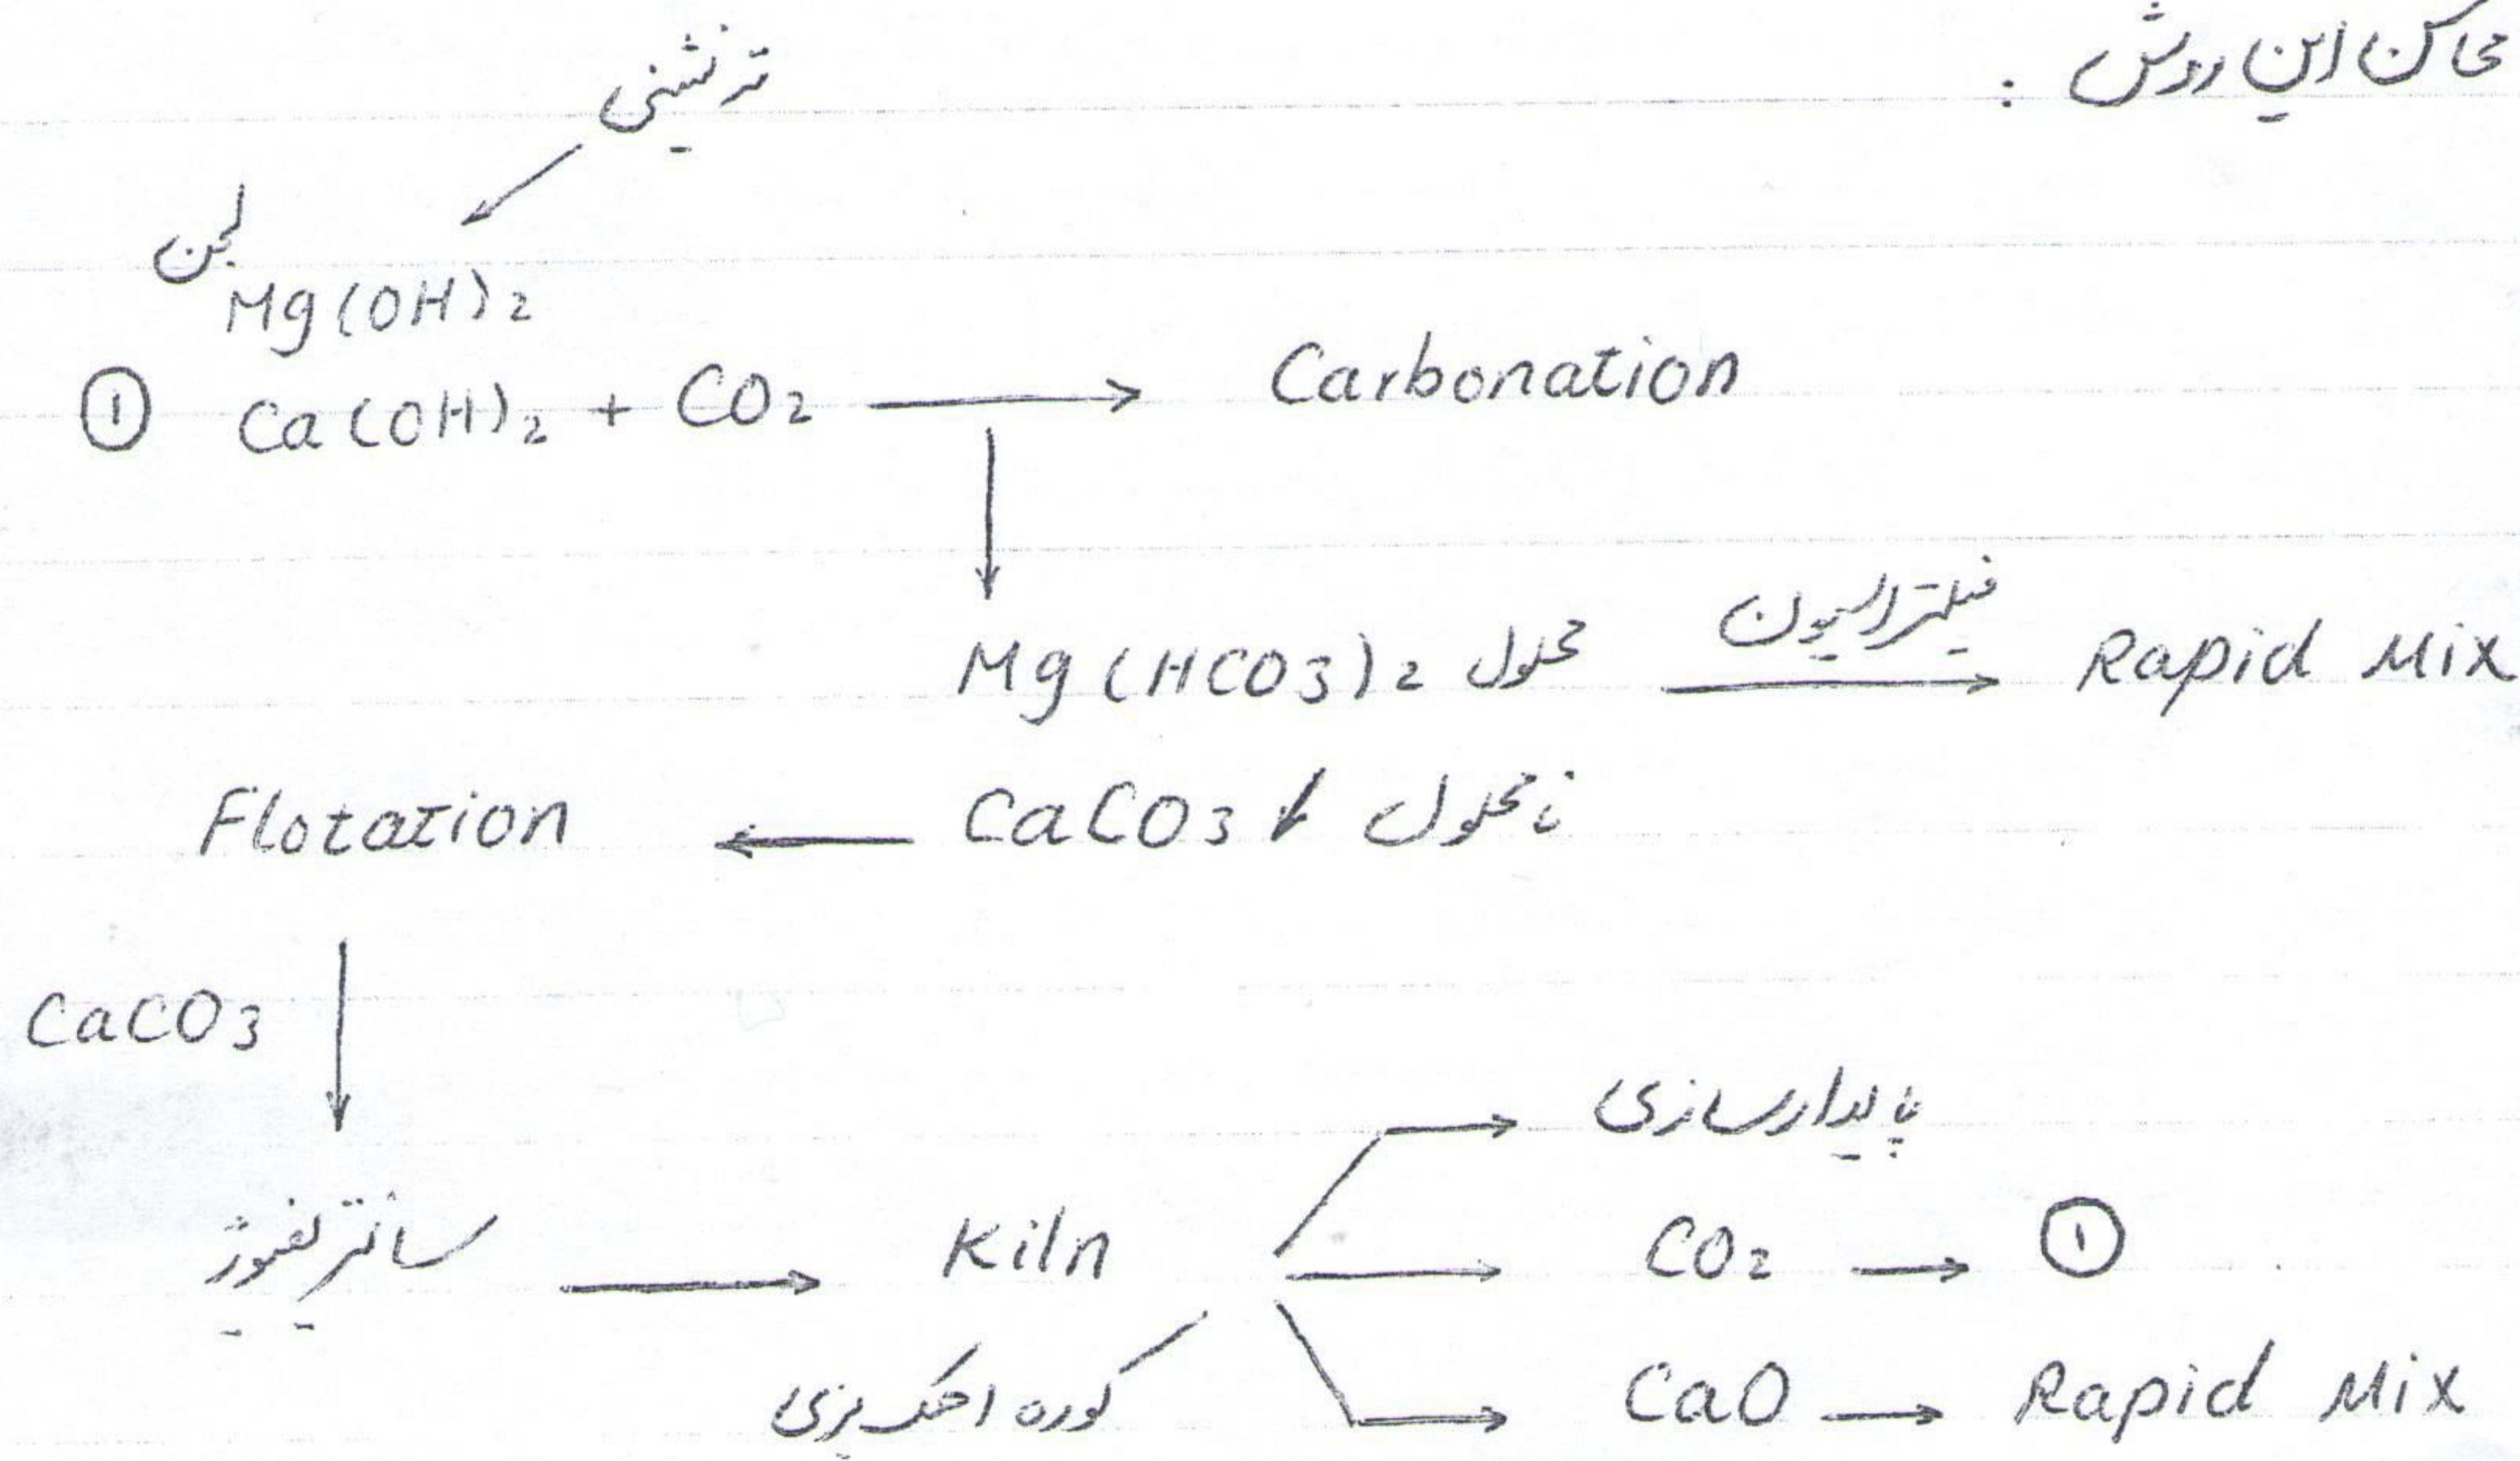 محاسن این روش :
ته نشینی
لجن
Mg(OH)2
① Ca(OH)2 + CO2 → Carbonation
↓
Mg(HCO3)2 محلول فیلتراسیون → Rapid Mix
Flotation ← CaCO3 ↓ نامحلول
CaCO3 ↓
پایدارسازی
سانتریفیوژ → Kiln → CO2 → ①
کوره آهک پزی → CaO → Rapid Mix